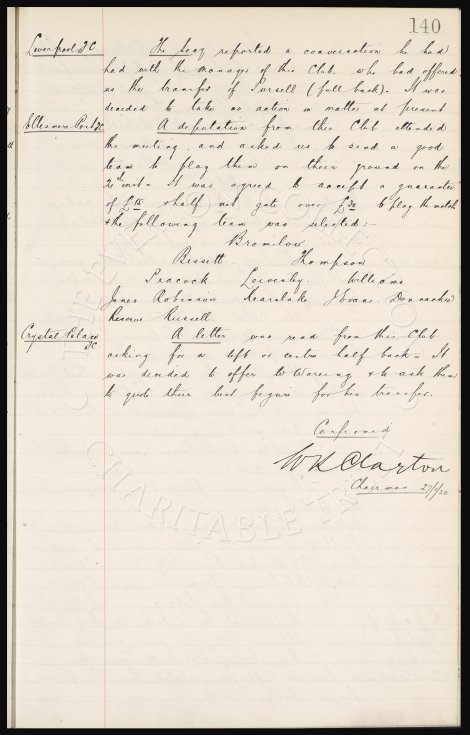 140
Liverpool FC The Secy reported a conversation he had
had with the manager of this Club, who had offered
us the transfer of Pursell (full back). It was
decided to take no action in matter at present
Ellesmere Port FC A deputation from this Club attended
the meeting, and asked us to send a good
team to play them on their ground on the
inst. It was agreed to accept a guarantee
of £15 & half net gate over £30 to play the match
& the following team was selected:-
Bromilow
Bessett. Thompson
Peacock Leivesley Williams
Jones Robinson Kearslake J Evans Donnachie
Reserve Russell.
Crystal Palace FC A letter was read from this Club
asking for a left or centre half back. It
was decided to offer W Wareing & to ask them
to quote their best figure for his transfer.
Confirmed
W R Clayton
Chairman 27/1/20
THE EVERTON
CHARITABLE TRUST